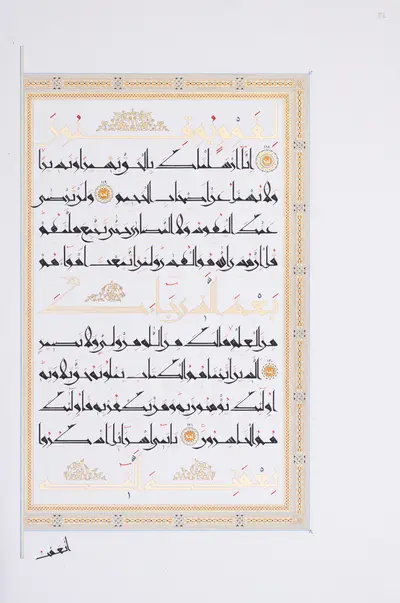 لقوم يوقنون
إنا أرسلناك بالحق بشيرا ونذيرا
ولا تسئل عن أصحاب الجحيم ولن ترضى
عنك اليهود ولا النصارى حتى تتبع ملتهم
قل إن هدى الله هو الهدى ولئن اتبعت أهواءهم
بعد الذي جاءك
من العلم ما لك من الله من ولي ولا نصير
الذين آتيناهم الكتاب يتلونه حق تلاوته
أولئك يؤمنون به ومن يكفر به فأولئك
هم الخاسرون يا بني إسرائيل اذكروا
نعمتي التي
أنعمت